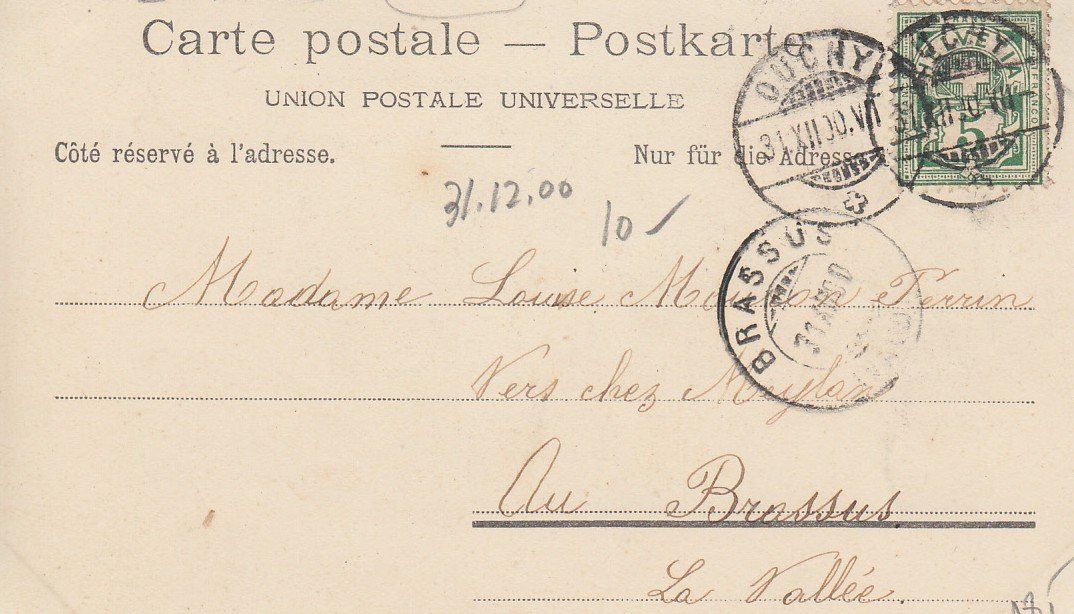 Carte postale — Postkarte
UNION POSTALE UNIVERSELLE
Côté réservé à l'adresse. Nur für die Adresse.
OUCHY
31.XII.00.VII
HELVETIA
FRANCO
5
31.12.00
10
BRASSUS
Madame Louise Perrin
Vers chez Meylan
Au Brassus
La Vallée.